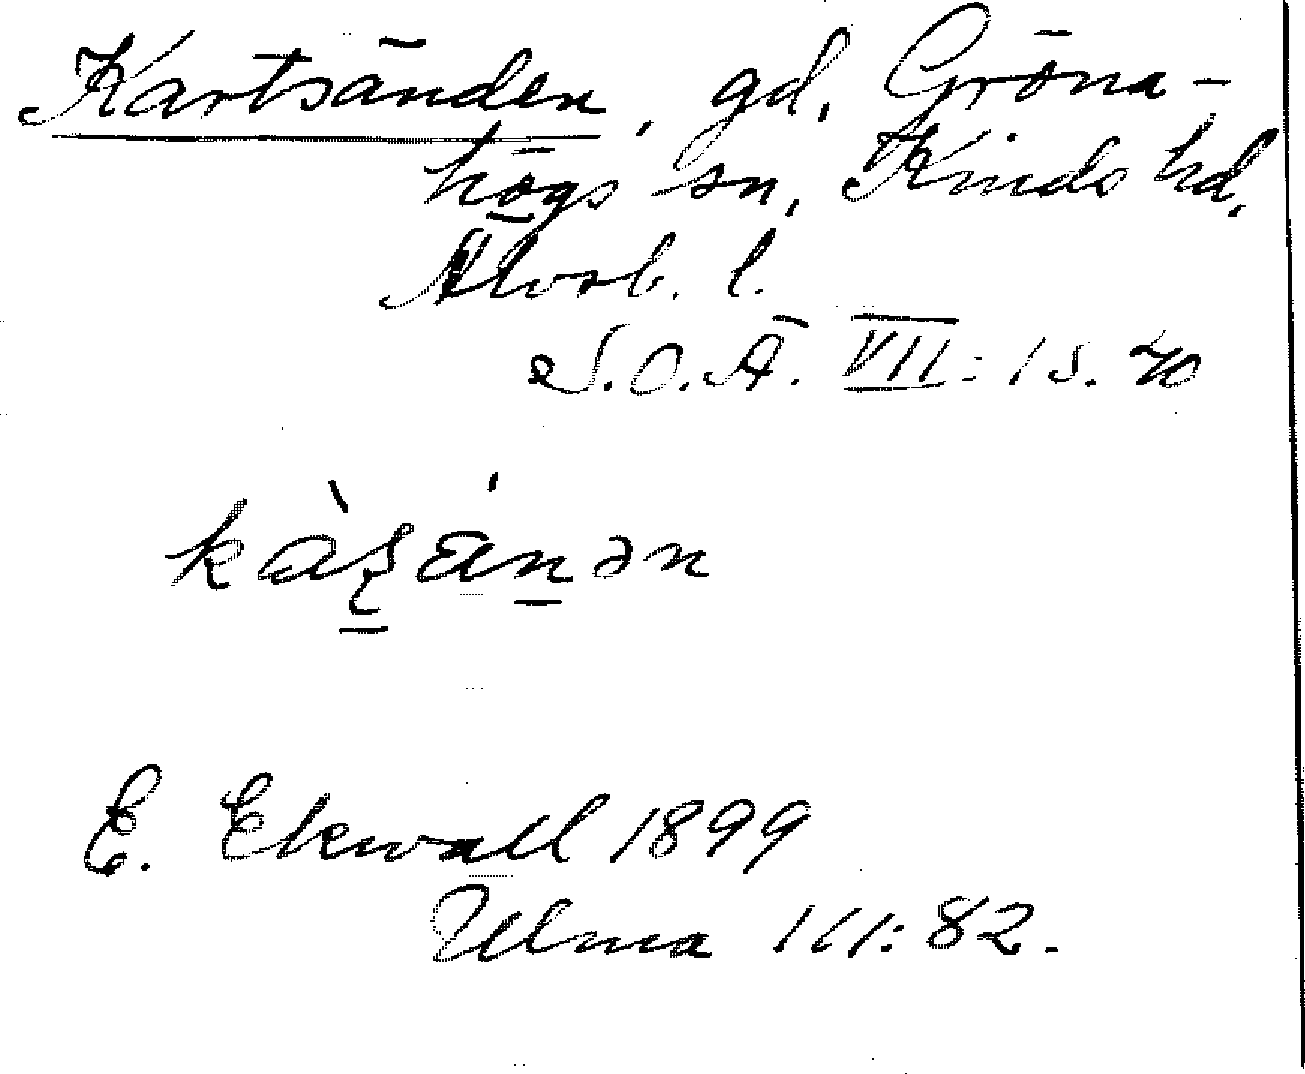 Kartsänden, gd, Gröna-
högs sn, Kinds hd,
Älvsb. l.
S.O.Ä. VII: 1 s. 70
E. Ekwall 1899
Ulma 111:82.